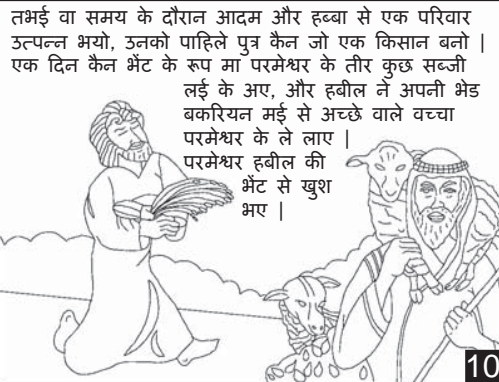 तभई वा समय के दौरान आदम और हब्बा से एक परिवार
उत्पन्न भयो, उनको पाहिले पुत्र कैन जो एक किसान बनो |
एक दिन कैन भेंट के रूप मा परमेश्वर के तीर कुछ सब्जी
लई के अए, और हबील ने अपनी भेड
बकरियन मई से अच्छे वाले वच्चा
परमेश्वर के ले लाए |
परमेश्वर हबील की
भेंट से खुश
भए |
10